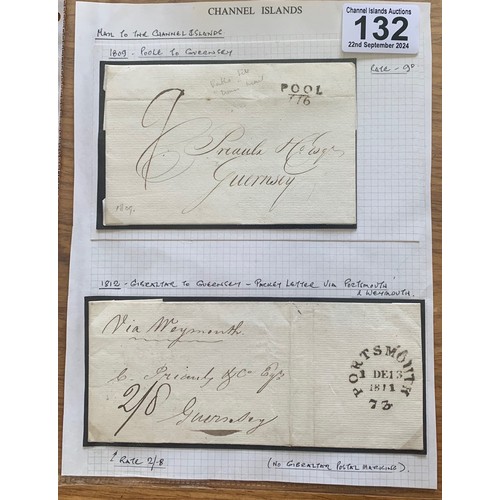 CHANNEL ISLANDS
Channel Islands Auctions
132
22nd September 2024
MAIL TO THE CHANNEL ISLANDS
1809 - POOLE TO GUERNSEY
RATE - 9d
POOL
116
9
Priaulx
Guernsey
1809.
1812 - GIBRALTAR TO GUERNSEY - PACKET LETTER VIA PORTSMOUTH
& WEYMOUTH.
Via Weymouth
Priaulx & Co Esqr
2/8
Guernsey
PORTSMOUTH
DE 13
1811
73
RATE 2/-8
(NO GIBRALTAR POSTAL MARKING).